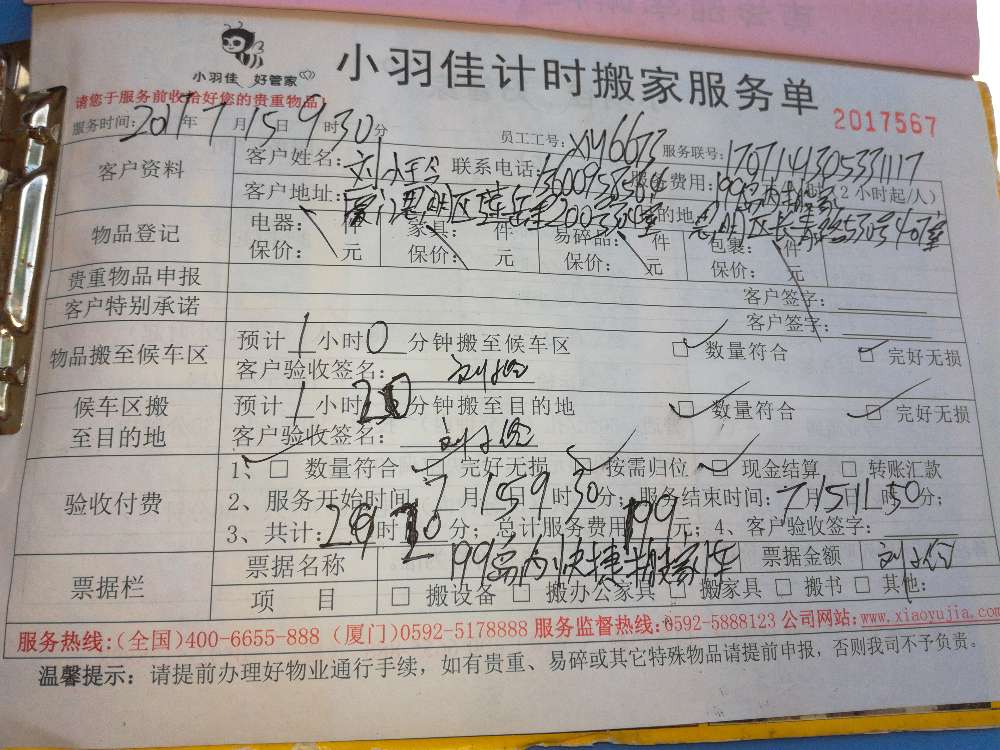 小羽佳 好管家
小羽佳计时搬家服务单
请您于服务前收拾好您的贵重物品!
2017567
服务时间: 2017 年 7 月 15 日 9 时 30 分 员工工号: XY6673 服务联号: 1707141305331117
客户资料 客户姓名: 联系电话: 服务费用: 199岛内搬家 (2小时起/人)
客户地址: 目的地
物品登记 电器: 件 家具: 件 易碎品: 件 包裹: 件
保价: 元 保价: 件 保价: 元 保价: 元
贵重物品申报 客户签字:
客户特别承诺 客户签字:
物品搬至候车区 预计 1 小时 0 分钟搬至候车区 □ 数量符合 □ 完好无损
客户验收签名:
候车区搬至目的地 预计 1 小时 20 分钟搬至目的地 □ 数量符合 □ 完好无损
客户验收签名:
验收付费 1、□ 数量符合 □ 完好无损 □ 按需归位 □ 现金结算 □ 转账汇款
2、服务开始时间 7 月 15 日 9 时 30 分; 服务结束时间: 7 月 15 日 11 时 50 分;
3、共计: 2 时 20 分; 总计服务费用 199 元; 4、客户验收签字:
票据栏 票据名称 199岛内快捷搬家车 票据金额
项 目 □ 搬设备 □ 搬办公家具 □ 搬家具 □ 搬书 □ 其他:
服务热线:(全国)400-6655-888 (厦门)0592-5178888 服务监督热线:0592-5888123 公司网站:www.xiaoyujia.com
温馨提示: 请提前办理好物业通行手续, 如有贵重、易碎或其它特殊物品请提前申报, 否则我司不予负责。